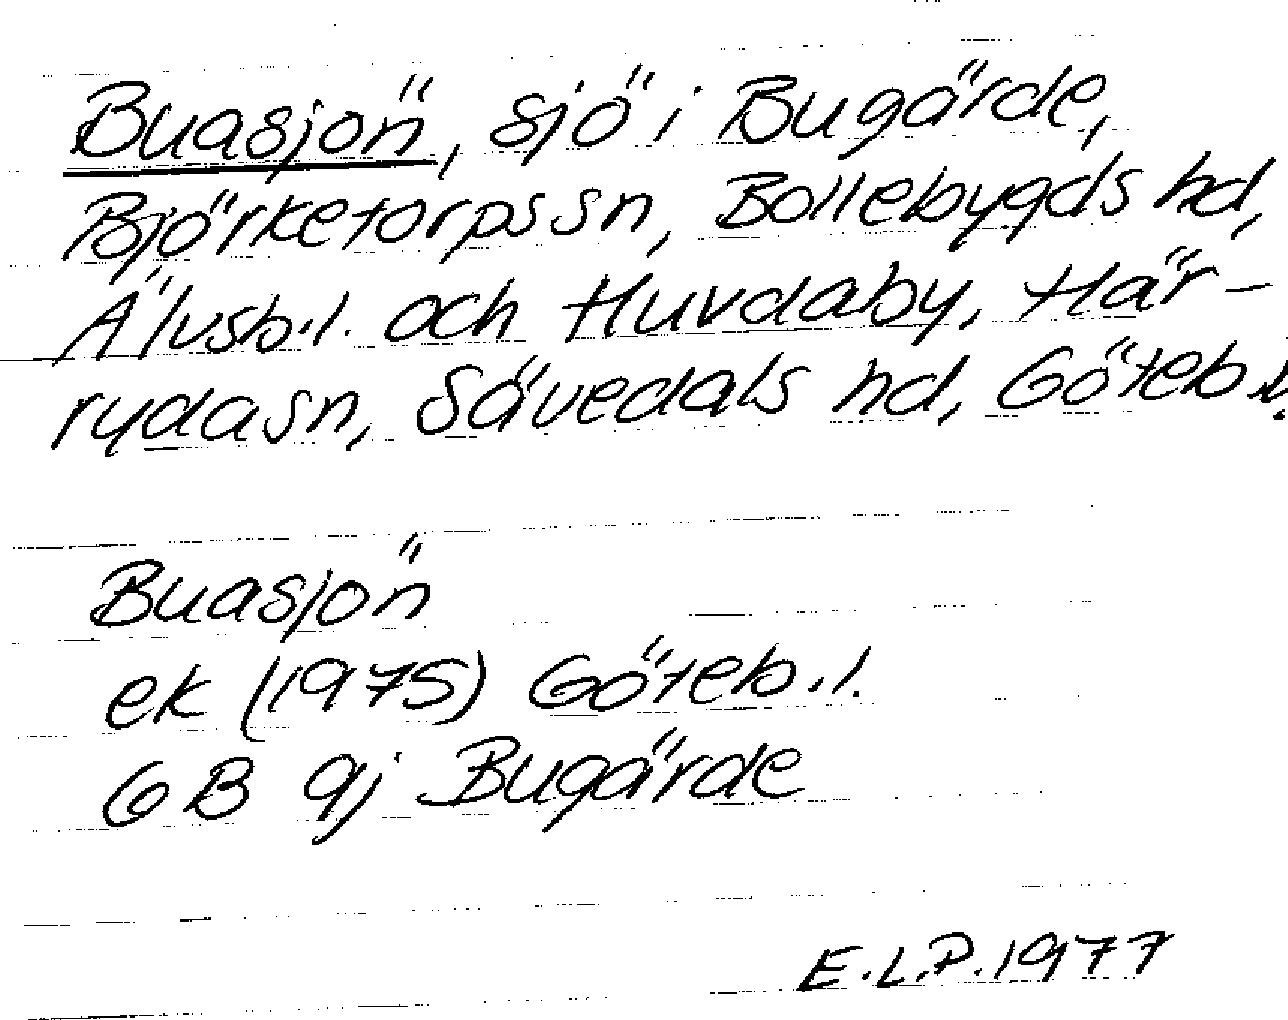 Buasjön, sjö i Bugärde,
Björketorps sn, Bollebygds hd,
Älvsb.l. och Huvdaby, Här-
ryda sn, Sävedals hd, Göteb.l.
Buasjön
ek (1975) Göteb.l.
GB 9j Bugärde
E.L.P. 1977